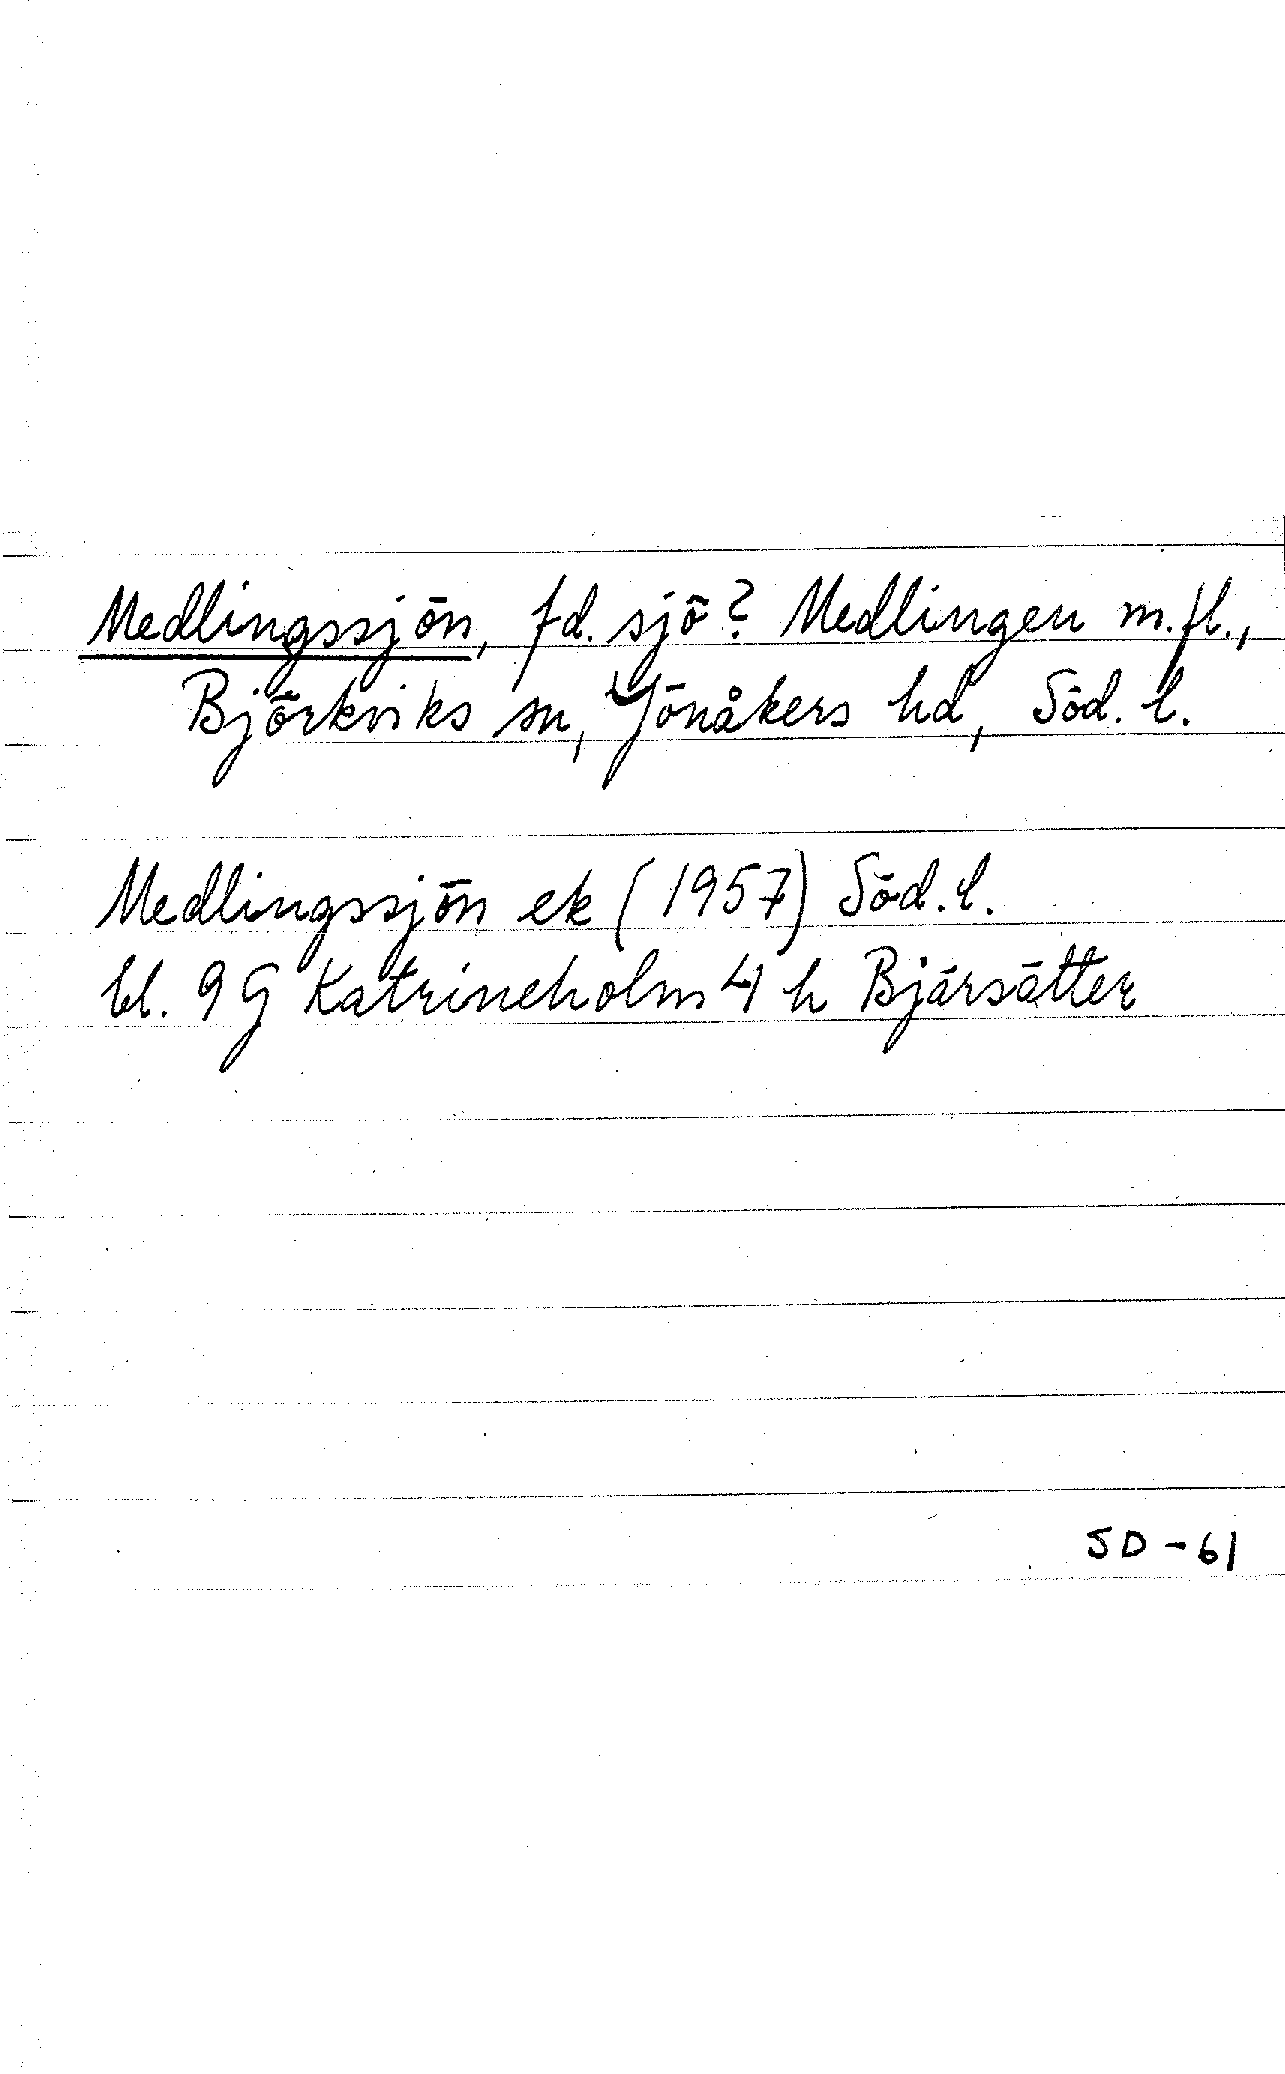 Medlingssjön, fd. sjö? Medlingen m.fl.,
Björkviks sn, Jönåkers hd, Söd. l.
Medlingssjön ek (1957) Söd. l.
bl. 9G Katrineholm 4 h Bjärsätter
SD-61